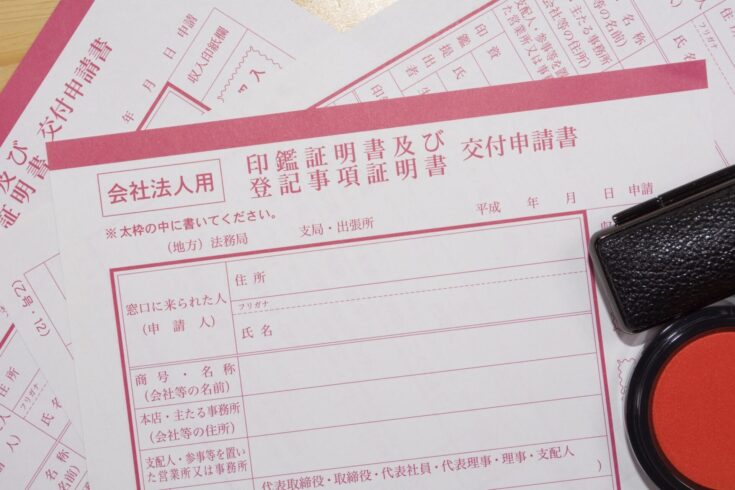 会社法人用
印鑑証明書及び
登記事項証明書
交付申請書
※太枠の中に書いてください。
(地方)法務局 支局・出張所 平成 年 月 日 申請
窓口に来られた人
(申請人)
住所
フリガナ
氏名
商号・名称
(会社等の名前)
本店・主たる事務所
(会社等の住所)
支配人・参事等を置い
た営業所又は事務所
代表取締役・取締役・代表社員・代表理事・理事・支配人
)
及び
証明書
交付申請書
年 月 日 申請
収入印紙欄
住所
フリガナ
氏名
支配人・参事等を置
た営業所又は事
名称
の名前)
主たる事務所
会社等の住所)
フリガナ
氏